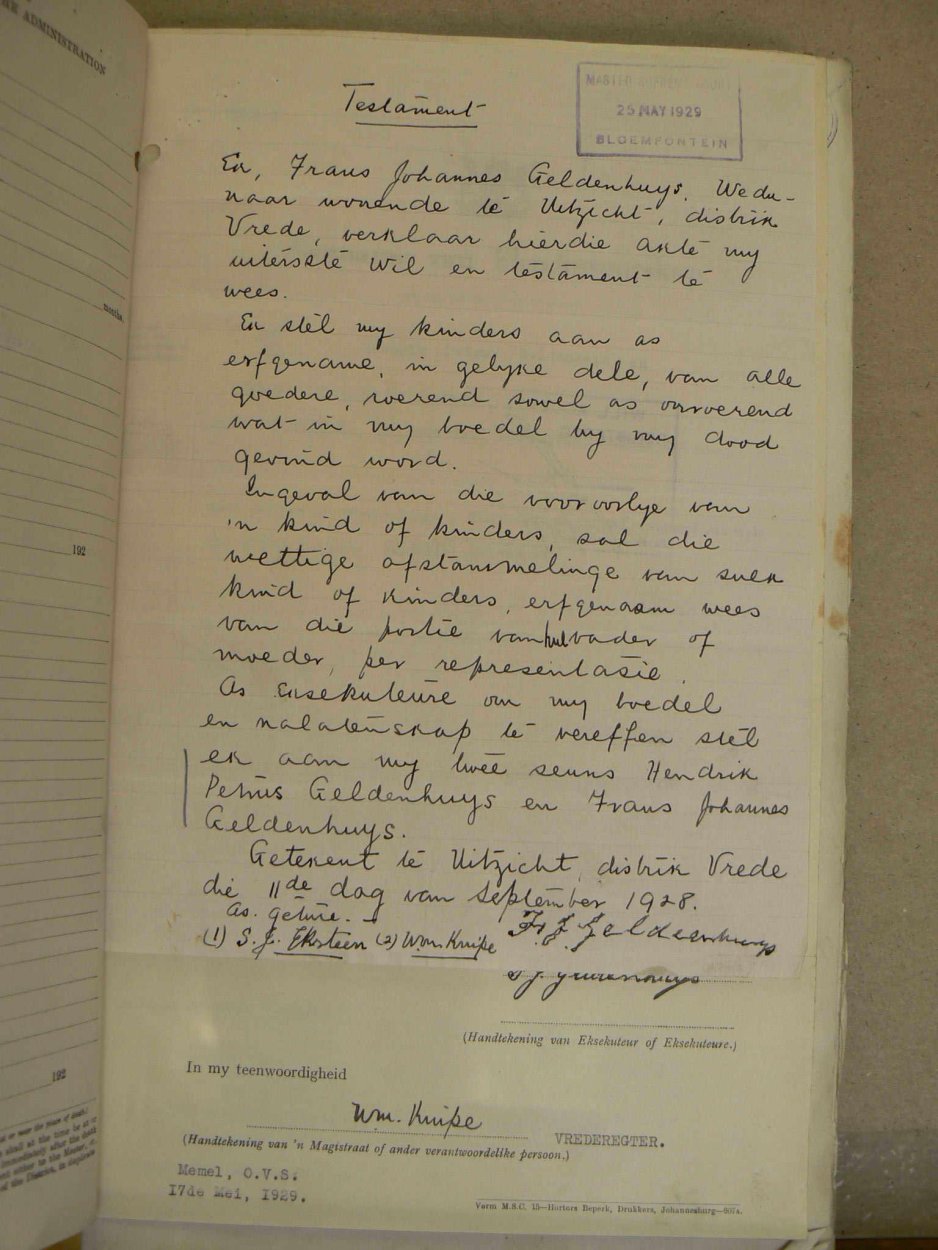 ADMINISTRATION
Testament
MASTER SUPREME COURT
25 MAY 1929
BLOEMFONTEIN
Ek, Frans Johannes Geldenhuys, Wedu-
naar wonende te Uitzicht, distrik
Vrede, verklaar hierdie akte my
uiterste wil en testament te
wees.
Ek stel my kinders aan as
erfgename, in gelyke dele, van alle
goedere, roerend sowel as onroerend
wat in my boedel by my dood
gevind word.
Ingeval van die vooroorlye van
'n kind of kinders, sal die
wettige afstammelinge van sulk
kind of kinders, erfgenaam wees
van die portie van hul vader of
moeder, per representasie.
As Eksekuteure om my boedel
en nalatenskap te vereffen stel
ek aan my twee seuns Hendrik
Petrus Geldenhuys en Frans Johannes
Geldenhuys.
Getekent te Uitzicht, distrik Vrede
die 11de dag van September 1928.
As. getuie.
(1) S. J. Eksteen (2) Wm. Knipe F. J. Geldenhuys
(Handtekening van Eksekuteur of Eksekuteure.)
In my teenwoordigheid
Wm. Knipe
VREDEREGTER.
(Handtekening van 'n Magistraat of ander verantwoordelike persoon.)
Memel, O.V.S.
17de Mei, 1929.
Vorm M.S.C. 15—Hortors Beperk, Drukkers, Johannesburg—607A.
months.
192
192